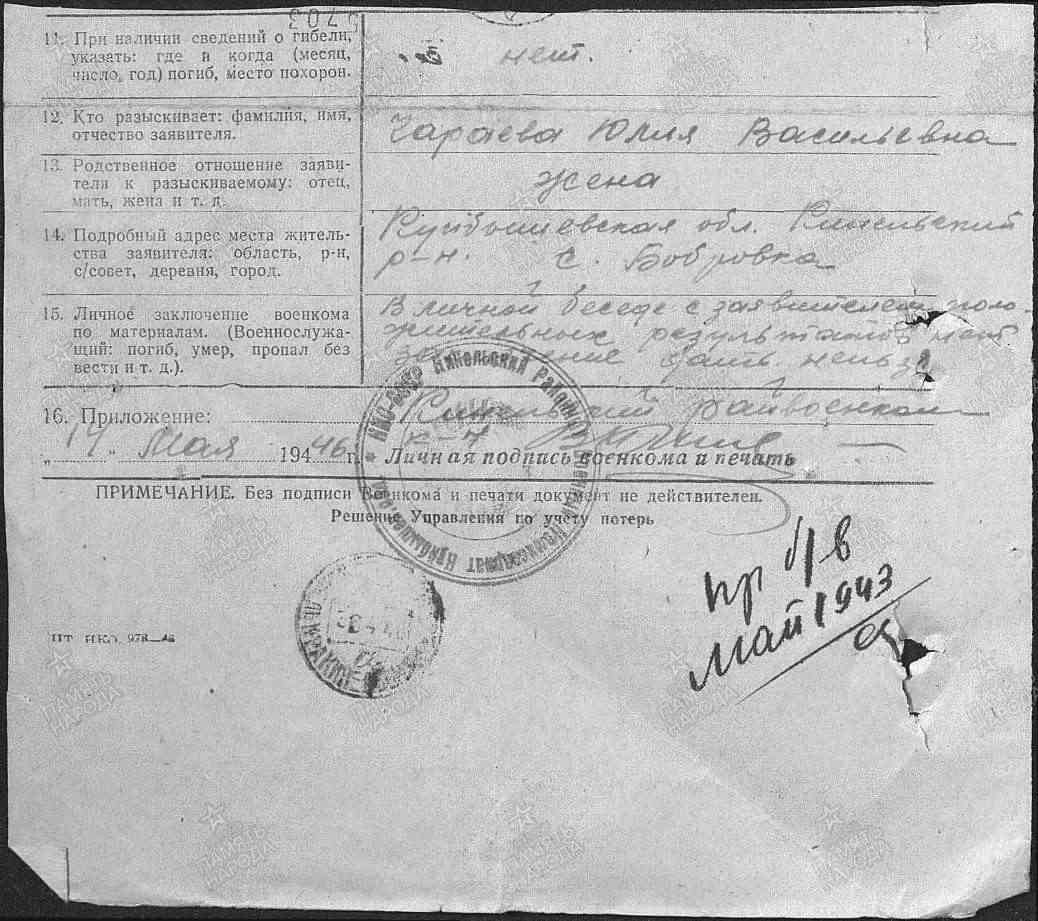 5703
11. При наличии сведений о гибели,
указать: где и когда (месяц,
число, год) погиб, место похорон.
нет.
12. Кто разыскивает: фамилия, имя,
отчество заявителя.
Чараева Юлия Васильевна
13. Родственное отношение заяви-
теля к разыскиваемому: отец,
мать, жена и т. д.
жена
14. Подробный адрес места житель-
ства заявителя: область, р-н,
с/совет, деревня, город.
Куйбышевская обл. Кинельский
р-н. с. Бобровка
15. Личное заключение военкома
по материалам. (Военнослужа-
щий: погиб, умер, пропал без
вести и т. д.).
В личной беседе с заявителем, поло-
жительных результатов нет
дать нельзя
16. Приложение:
Кинельский райвоенком
к-н
„14" Мая 1946 г. Личная подпись военкома и печать
НКО-СССР Кинельский Районный Военный Комиссариат Куйбышевск. обл.
ПРИМЕЧАНИЕ. Без подписи Военкома и печати документ не действителен.
Решение Управления по учету потерь
пр б/в
май 1943
ПТ НКО 978—46
ПАМЯТЬ НАРОДА